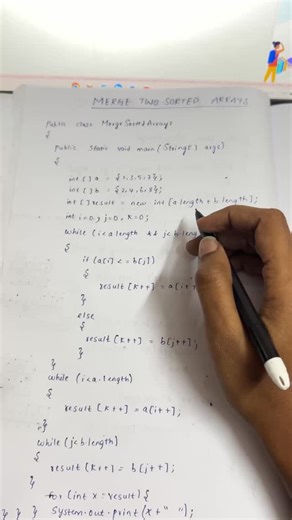 MERGE TWO SORTED ARRAYS
public class MergeSortedArrays
{
public static void main (String[] args)
{
int[] a = {1,3,5,7};
int[] b = {2,4,6,8};
int[] result = new int [a.length + b.length];
int i=0, j=0, k=0;
while (i<a.length && j<b.length)
{
if (a[i] <= b[j])
{
result [k++] = a[i++];
}
else
{
result [k++] = b[j++];
}
}
while (i<a.length)
{
result [k++] = a[i++];
}
while (j<b.length)
{
result [k++] = b[j++];
}
for (int x : result) {
System.out.print (x + " ");
} } }